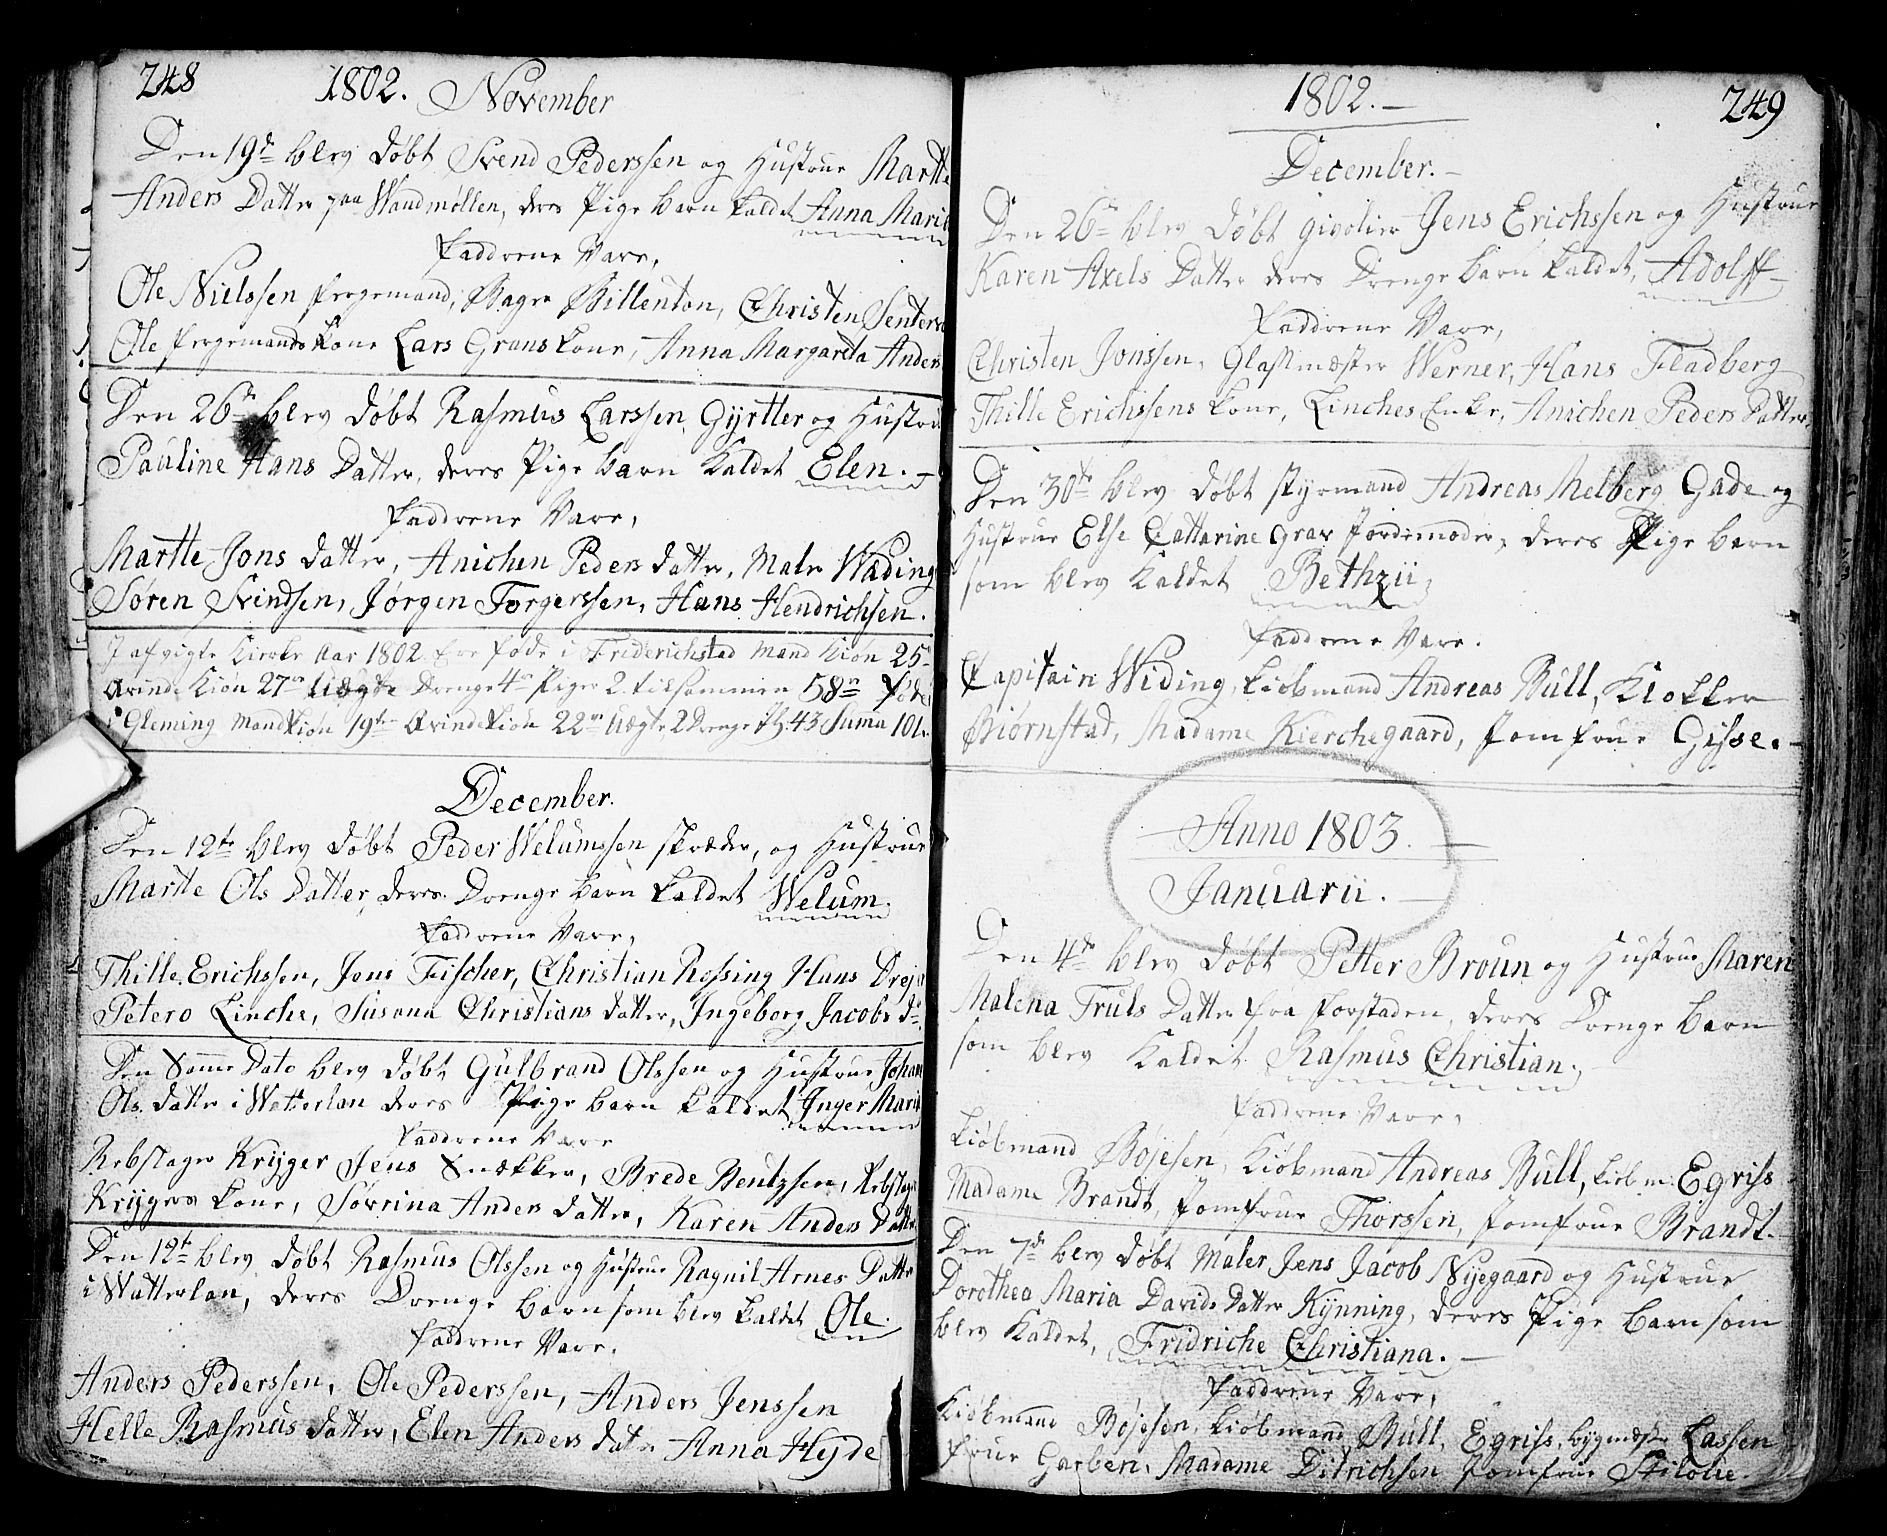 248 1802. November
Den 19de blev døbt Svend Pederssen og Hustrue Marthe
Anders Datter paa Wandmøllen, deres Pige barn kaldet Anna Maria
Faddrene Vare,
Ole Nielssen færgemand, Bager Billenton, Christen
Ole færgemands kone Lars Grans kone, Anna Margareta Anders
Den 26de blev døbt Rasmus Larssen, Gyrtler og Hustrue
Pauline Hans Datter, deres Pige barn kaldet Elen. -
Faddrene Vare,
Marthe Jons datter, Anichen Peders datter, Maler Wæding
Søren Svindsen, Jørgen Torgerssen, Hans Hendrichsen.
I afvigte Kirke Aar 1802 ere føde i Friderichstad Mand Kiøn 25
Qvinde Kiøn 27 Uægte Drenge 4 Piger 2 tilsammen 58 føde
i Gleming Mandkiøn 19 Qvindekiøn 22 Uægte 2 Drenge 43 Suma 101.
December.
Den 12te blev døbt Peder Welumssen skræder, og Hustrue
Marthe Ols Datter, deres Drenge barn kaldet Welum.
Faddrene Vare,
Thille Erichssen, Jens Fischer, Christian Rossing Hans Drejer
Petero Linche, Susana Christians datter, Ingeborg Jacobs dr
Den Samme Dato blev døbt Gulbrand Olssen og Hustrue Johane
Ols datter i Watterlan deres Pige barn kaldet Inger Maria
Faddrene Vare
Rebslager Kryger Jens Snækker, Brede Bentzsen, Rebslager
Krygers kone, Sørrina Anders datter, Karen Anders Datter
Den 12te blev døbt Rasmus Olssen og Hustrue Ragnil Arnes Datter
i Watterlan, deres Drenge barn som blev kaldet Ole.
Faddrene Vare,
Anders Pederssen, Ole Pederssen, Anders Jenssen
Helle Rasmus datter, Elen Anders dater Anna Hejde
1802. - 249
December. -
Den 26de blev døbt Jens Erichssen og Hustrue
Karen Axels Datter deres Drenge barn kaldet, Adolff -
Faddrene Vare,
Christen Jonssen, Glassmæster Werner, Hans Fladberg
Thille Erichssens kone, Linches Enke, Anichen Peders Datter.
Den 30te blev døbt styrmand Andreas Melberg Gade og
Hustrue Else Cattarine Grav Jordemoder, deres Pige barn
som blev kaldet Bethzii,
Faddrene Vare.
Capitain Widing, kiøbmand Andreas Bull, Klokker
Biørnstad, Madame Kierchegaard, Jomfrue Gisse. -
Anno 1803. -
Januarii. -
Den 4de blev døbt Petter Broun og Hustrue Maren
Malena Truls Datter fra forstaden, deres Drenge barn
som blev kaldet Rasmus Christian.
Faddrene Vare,
kiøbmand Bøjesen, Kiøbmand Andreas Bull, kiøbm. Egriss
Madame Brandt, Jomfrue Thorssen, Jomfrue Brandt.
Den 7de blev døbt Maler Jens Jacob Nyegaard og Hustrue
Dorothea Maria Davids Datter Kynning, deres Pige barn som
blev kaldet, Fridriche Christiana. -
Faddrene Vare,
Kiøbmand Bøjesen, kiøbmand Bull, Egriss, bygmæster Lassen
frue Garben, Madame Ditrichsen Jomfrue